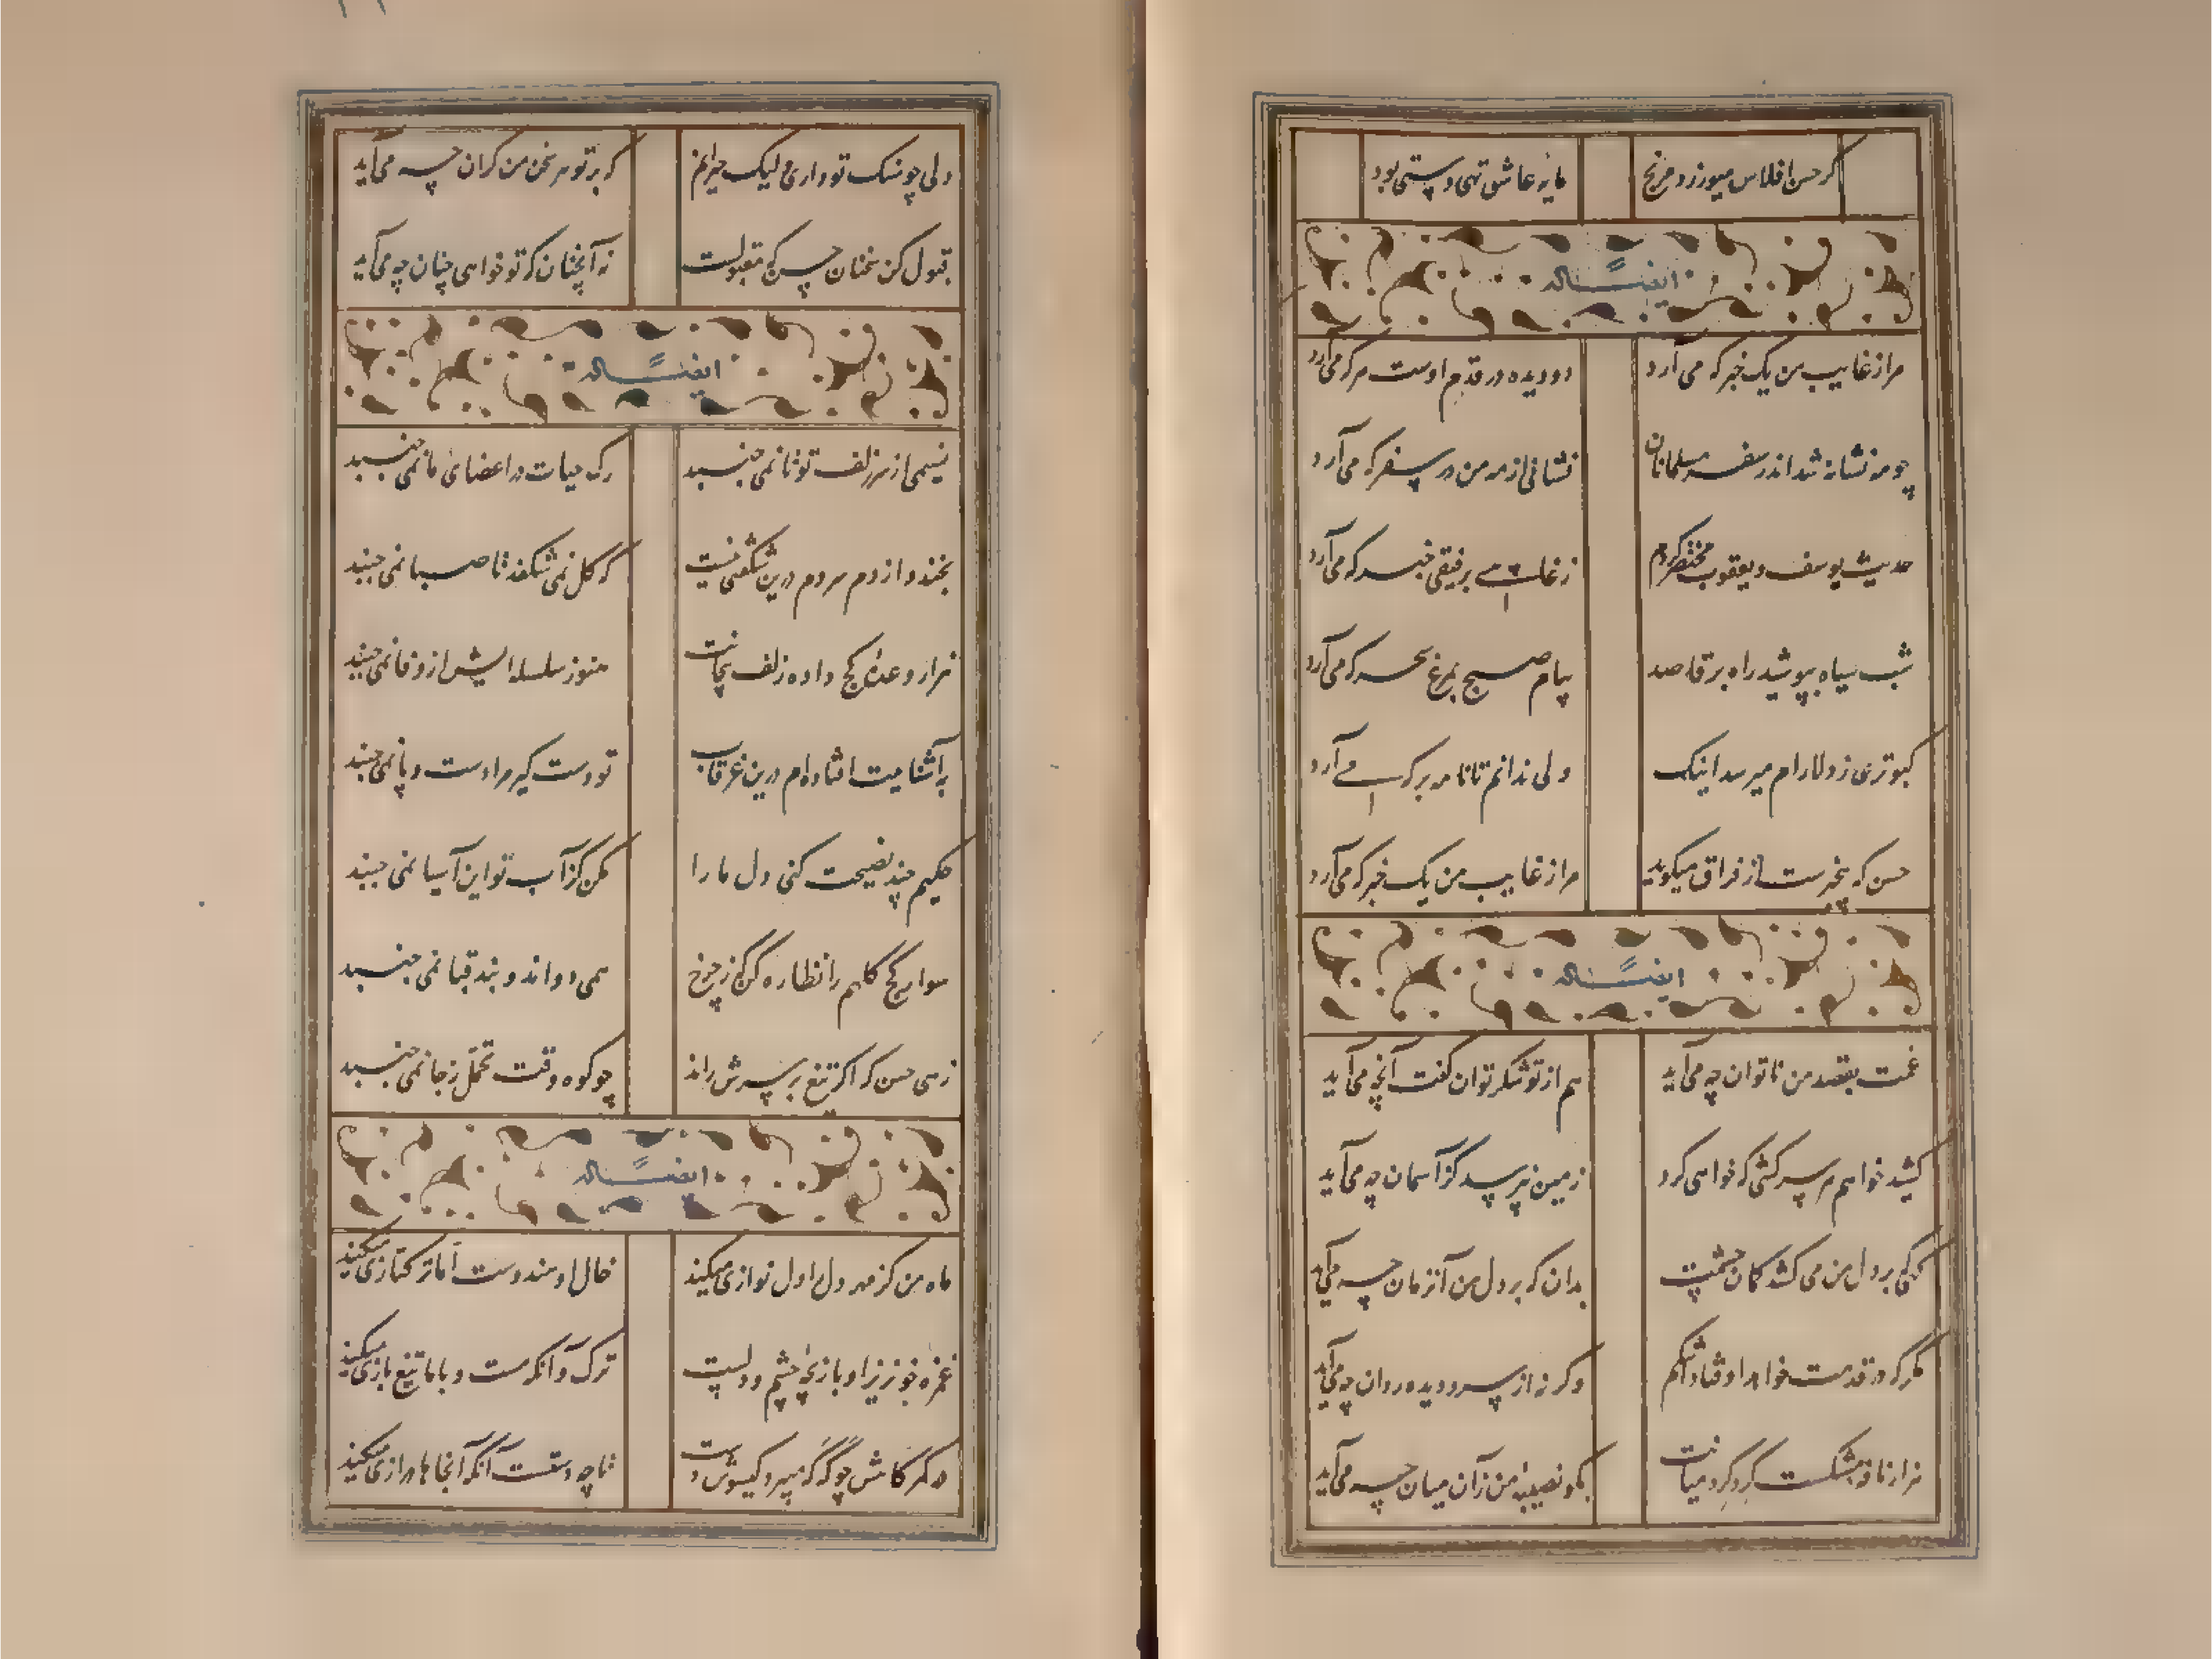 گر حسن افلاس میورزد مرنج مایه عاشق تهی دستی بود
ایضاً له
مرا ز غایب من یک خبر که می آرد دو دیده در قدم اوست هر که می آرد
چو مه نشانه شد اندر سفر مسلمانان نشانی از مه من در سفر که می آرد
حدیث یوسف و یعقوب مختصر کردم ز غایبی برفیقی خبر که می آرد
شب سیاه بپوشید راه بر قاصد پیام صبح بمرغ سحر که می آرد
کبوتری ز دلارام میرسد اینک ولی ندانم تا نامه بر که می آرد
حسن که بیخبرست از فراق میگوید مرا ز غایب من یک خبر که می آرد
ایضاً له
غمت بقصد من ناتوان چه می آید هم از تو شکر توان گفت آنچه می آید
کشید خواهم هر سرکشی که خواهی کرد زمین نپرسد کز آسمان چه می آید
کمین بر دل من می کشد کمان چشمت بدان که بر دل من آنزمان چه می آید
مگر که در قدمت خواهد اوفتاد اشکم وگرنه از سر دو دیده روان چه می آید
هزار نافه شکست گرد گرد میانت بگو نصیبه من زان میان چه می آید
دلی چو سنگ تو داری و لیک حیرانم که بر تو هر سخن من گران چه می آید
قبول کن سخنان حسن که مقبولست نه آنچنان که تو خواهی چنان چه می آید
ایضاً له
نسیمی از سر زلف تو تا نمی جنبد رگ حیات در اعضای ما نمی جنبد
بخندد از دم سردم درین شگفتی نیست که گل نمی شکفد تا صبا نمی جنبد
هزار وعده کج داده زلف بیجانت هنوز سلسله ایش از وفا نمی جنبد
به آشناییت افتاده ام درین غرقاب تو دست گیر مرا دست و پا نمی جنبد
حکیم چند نصیحت کنی دل ما را مکن کز آب تو این آسیا نمی جنبد
سوار کج کلهم را نظاره کن که ز چرخ همی دواند و بند قبا نمی جنبد
زهی حسن که اگر تیغ بر سرش راند چو کوه وقت تحمل ز جا نمی جنبد
ایضاً له
ماه من کز مهر دل اول نوازی میکند خال او هندوست اما ترکتازی میکند
غمزه خونریز او بازیچه چشم و دلست ترک و آنگه مست و با ما تیغ بازی میکند
در کمرگاهش چو گه گه میرود گیسوش دست تا چه دستست آنکه آنجاها درازی میکند